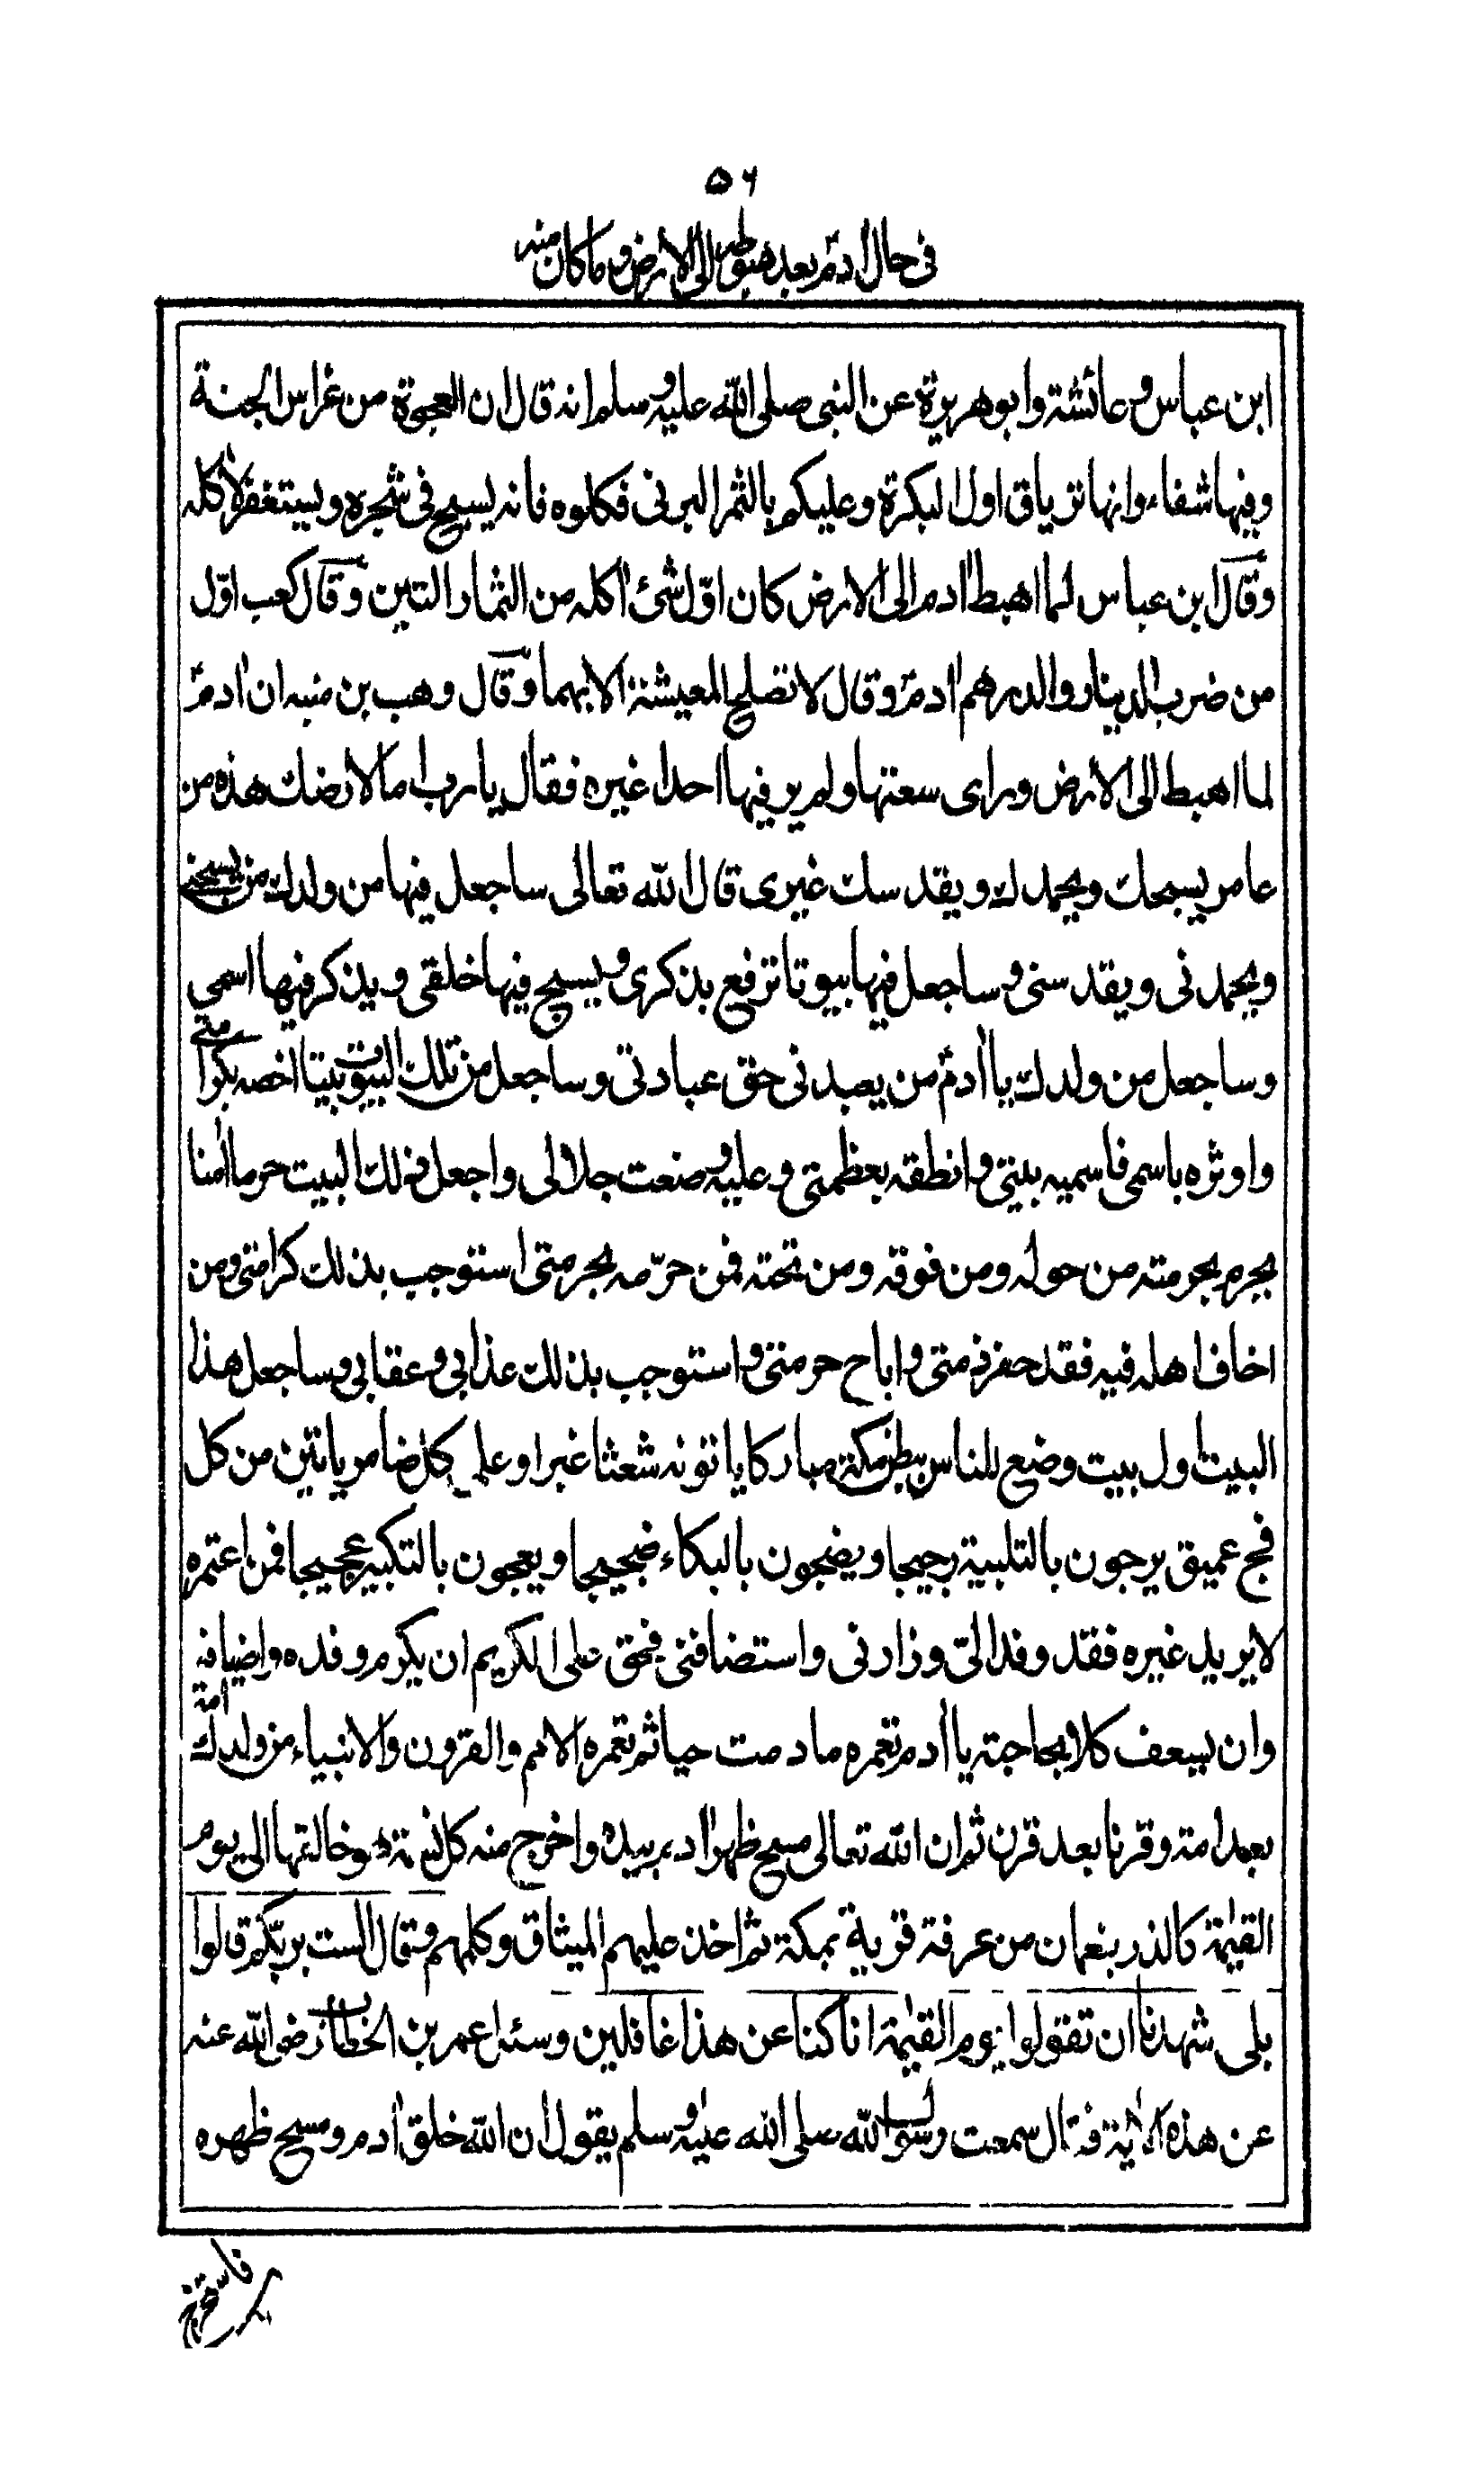 ٥٦
في حال اٰدم بعد هبوطه الى الارض وما كان منه
ابن عباس وعائشة وابو هريرة عن النبى صلى الله عليه وسلم انه قال ان العجوة من غراس الجنة
وفيها شفاء وانها ترياق اول البكرة وعليكم بالثمر البرنى فكلوه فانه يسبح فى شجره ويستغفر لاٰكله
وقال ابن عباس لما اهبط اٰدم الى الارض كان اوّل شئ اكله من الثمار التين وقال كعب اوّل
من ضرب الدينار والدرهم اٰدم وقال لا تصلح المعيشة الا بهما وقال وهب بن منبه ان اٰدم
لما اهبط الى الارض وراى سعتها ولم ير فيها احدا غيره فقال يا رب اما لارضك هذه من
عامر يسبحك ويحمدك ويقدسك غيرى قال الله تعالى ساجعل فيها من ولدك من يسبحنى
ويحمدنى ويقدسنى وساجعل فيها بيوتا ترفع بذكرى ويسبح فيها خلقى ويذكر فيها اسمى
وساجعل من ولدك يا اٰدم من يعبدنى حق عبادتى وساجعل من تلك البيوت بيتا اخصه بكرامتى
واوثره باسمى فاسميه بيتى وانطقه بعظمتى وعليه وضعت جلالى واجعل ذلك البيت حرما اٰمنا
يحرم بحرمته من حوله ومن فوقه ومن تحته فمن حرّمه بحرمتى استوجب بذلك كرامتى ومن
اخاف اهله فيه فقد حفر ذمتى واباح حرمتى واستوجب بذلك عذابى وعقابى وساجعل هذا
البيت اول بيت وضع للناس ببطن مكة مباركا ياتونه شعثا غبرا وعلى كل ضامر ياتين من كل
فج عميق يرجون بالتلبية رجيجا ويضجون بالبكاء ضجيجا ويعجون بالتكبير عجيجا فمن اعتمره
لا يريد غيره فقد وفد الىّ وزارنى واستضافنى فحق على الكريم ان يكرم وفده واضيافه
وان يسعف كلا بحاجته يا اٰدم تعمره ما دمت حيا ثم تعمره الامم والقرون والانبياء من ولدك امة
بعد امة وقرنا بعد قرن ثم ان الله تعالى مسح ظهر اٰدم بيده واخرج منه كل نسمة هو خالقها الى يوم
القيٰمة كالذر بنعمان من عرفة قرية بمكة ثم اخذ عليهم الميثاق وكلمهم وقال الست بربّكم قالوا
بلى شهدنا ان تقولوا يوم القيٰمة انا كنا عن هذا غافلين وسئل عمر بن الخطاب رضى الله عنه
عن هذه الاٰية فقال سمعت رسول الله صلى الله عليه وسلم يقول ان الله خلق اٰدم ومسح ظهره